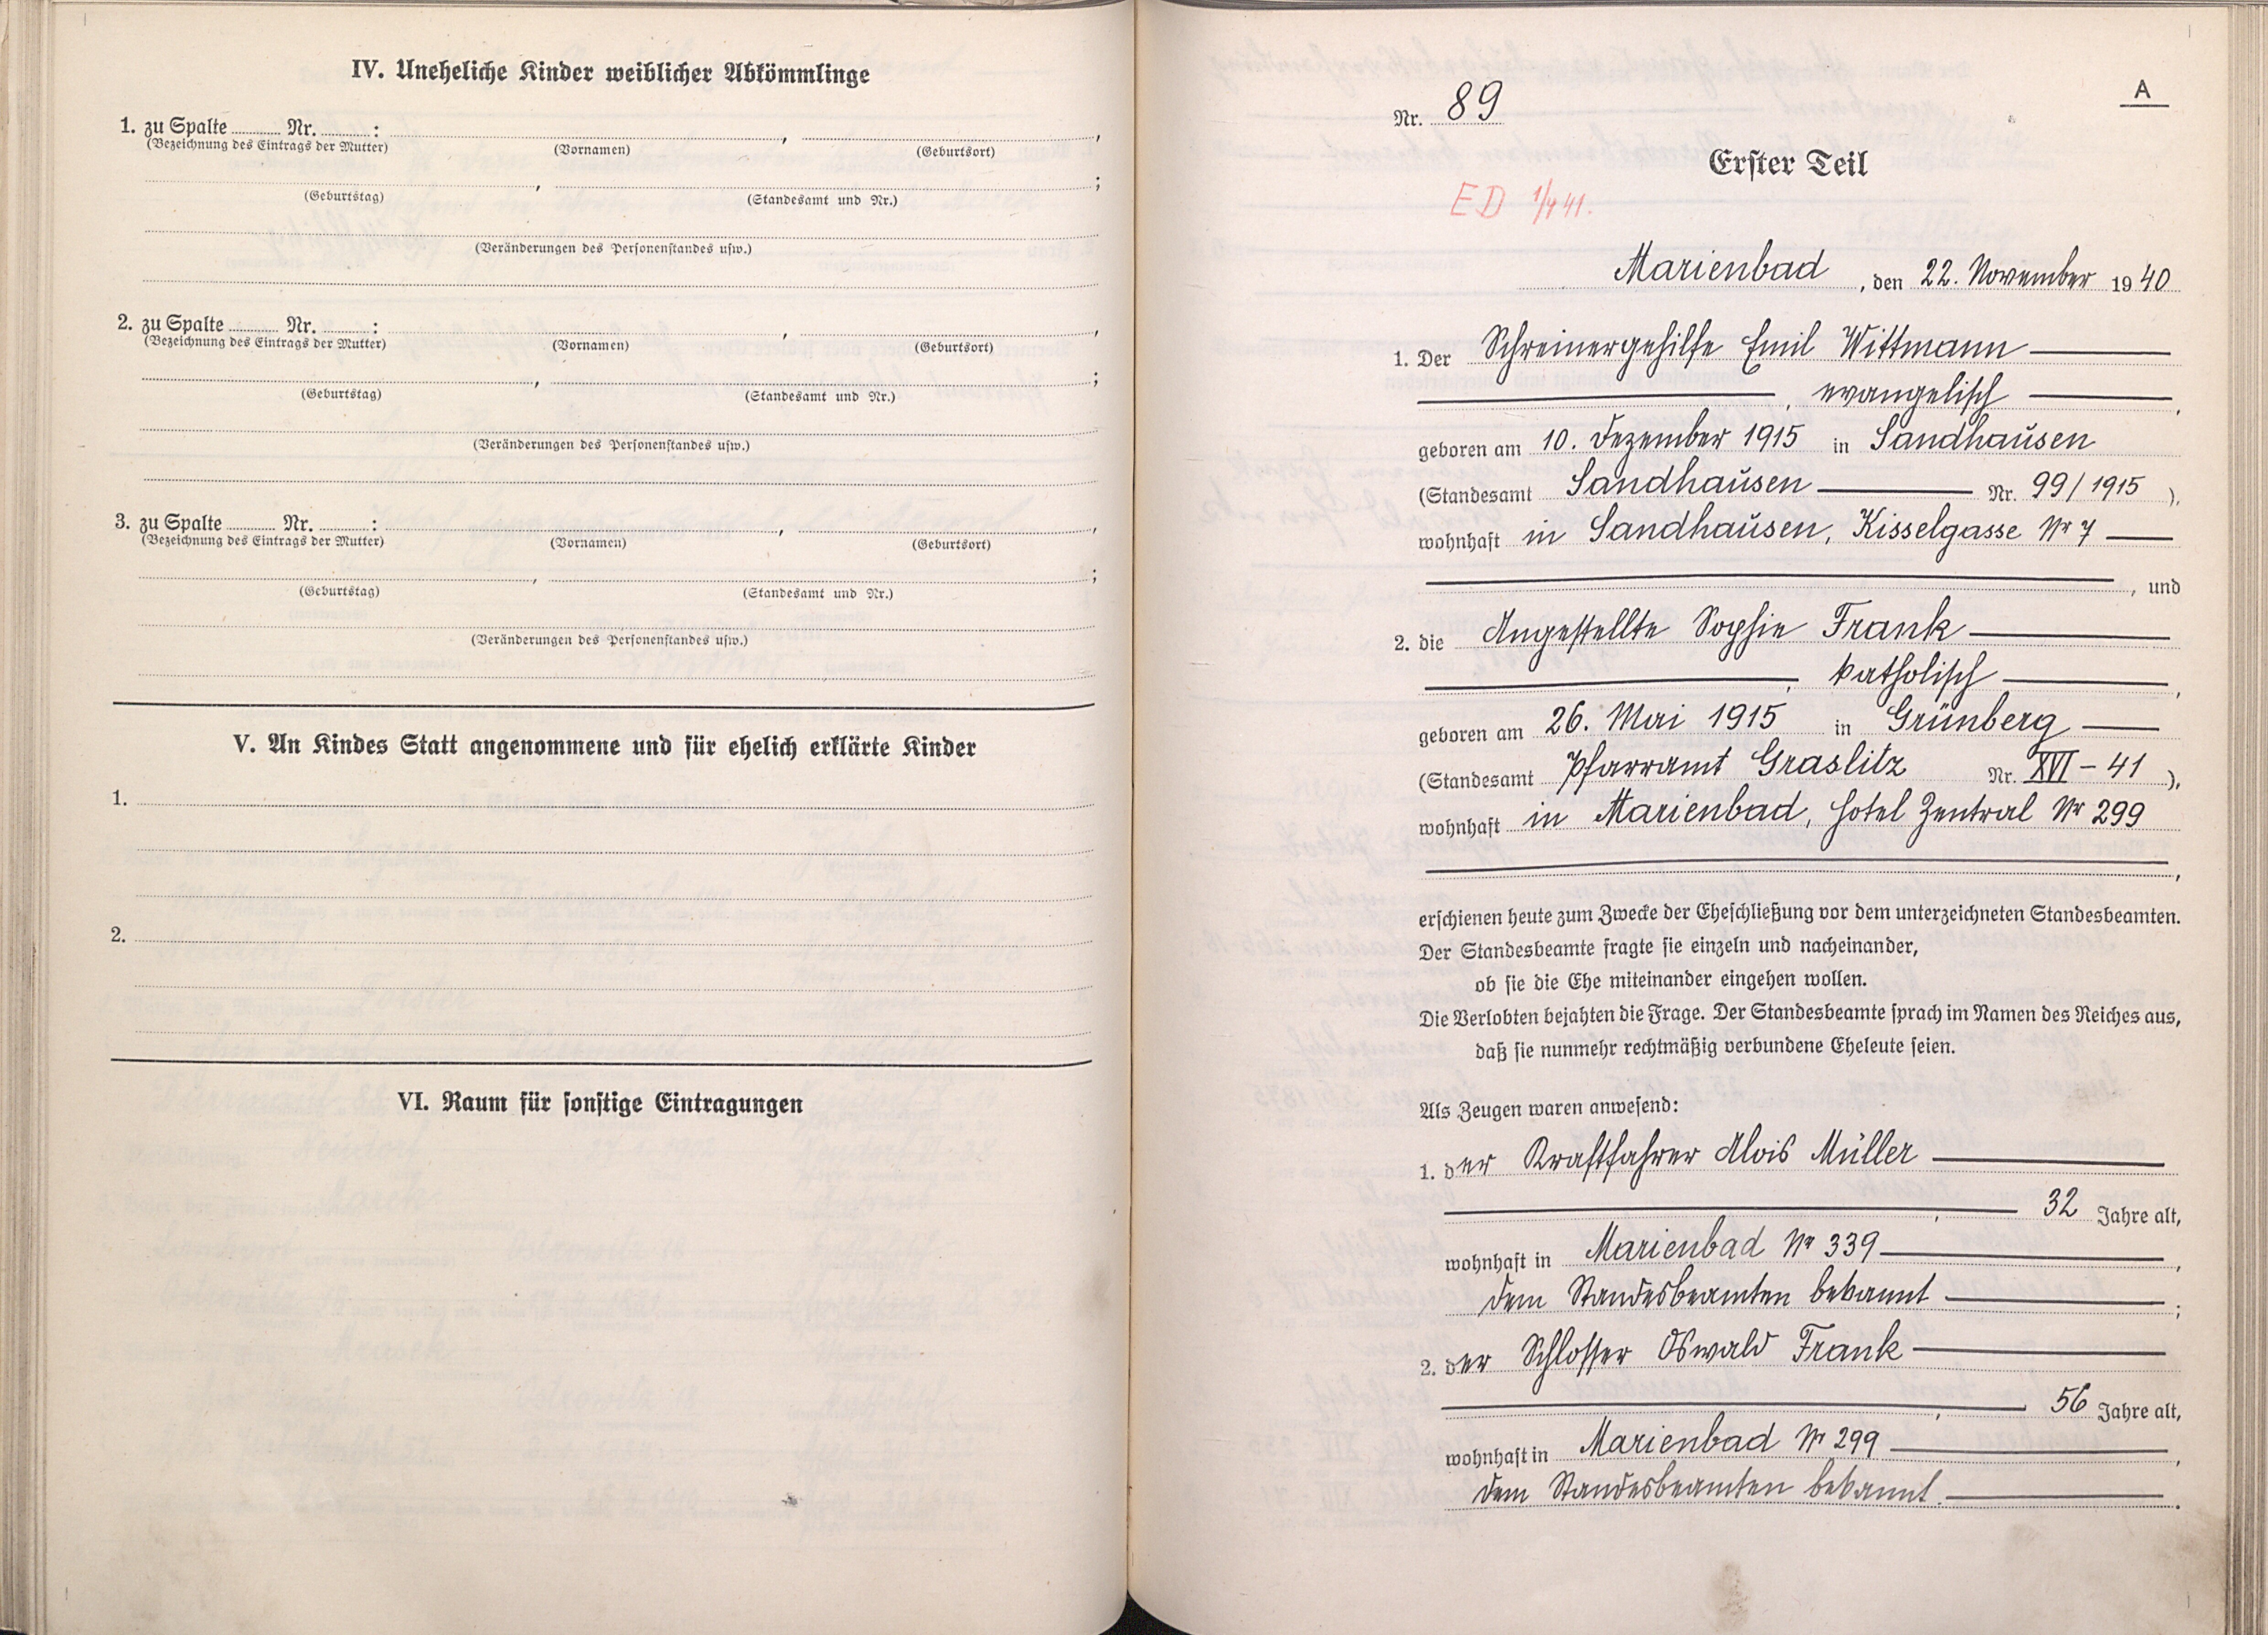 IV. Uneheliche Kinder weiblicher Abkömmlinge
1. zu Spalte ............ Nr. ............ : ............ , ............ ,
(Bezeichnung des Eintrags der Mutter) (Vornamen) (Geburtsort)
............ , ............ ;
(Geburtstag) (Standesamt und Nr.)
(Veränderungen des Personenstandes usw.)
2. zu Spalte ............ Nr. ............ : ............ , ............ ,
(Bezeichnung des Eintrags der Mutter) (Vornamen) (Geburtsort)
............ , ............ ;
(Geburtstag) (Standesamt und Nr.)
(Veränderungen des Personenstandes usw.)
3. zu Spalte ............ Nr. ............ : ............ , ............ ,
(Bezeichnung des Eintrags der Mutter) (Vornamen) (Geburtsort)
............ , ............ ;
(Geburtstag) (Standesamt und Nr.)
(Veränderungen des Personenstandes usw.)
V. An Kindes Statt angenommene und für ehelich erklärte Kinder
1.
2.
VI. Raum für sonstige Eintragungen
A
Nr. 89
Erster Teil
ED 1/4 41.
Marienbad, den 22. November 1940
1. Der Schreinergehilfe Emil Wittmann
, evangelisch ,
geboren am 10. Dezember 1915 in Sandhausen
(Standesamt Sandhausen Nr. 99/1915 ),
wohnhaft in Sandhausen, Kisselgasse Nr 7
, und
2. die Angestellte Sophie Frank
, katholisch ,
geboren am 26. Mai 1915 in Grünberg
(Standesamt Pfarramt Graslitz Nr. XVI - 41 ),
wohnhaft in Marienbad, Hotel Zentral Nr 299
,
erschienen heute zum Zwecke der Eheschließung vor dem unterzeichneten Standesbeamten.
Der Standesbeamte fragte sie einzeln und nacheinander,
ob sie die Ehe miteinander eingehen wollen.
Die Verlobten bejahten die Frage. Der Standesbeamte sprach im Namen des Reiches aus,
daß sie nunmehr rechtmäßig verbundene Eheleute seien.
Als Zeugen waren anwesend:
1. der Kraftfahrer Alois Müller
, 32 Jahre alt,
wohnhaft in Marienbad Nr 339 ,
dem Standesbeamten bekannt ;
2. der Schlosser Oswald Frank
, 56 Jahre alt,
wohnhaft in Marienbad Nr 299 ,
dem Standesbeamten bekannt.